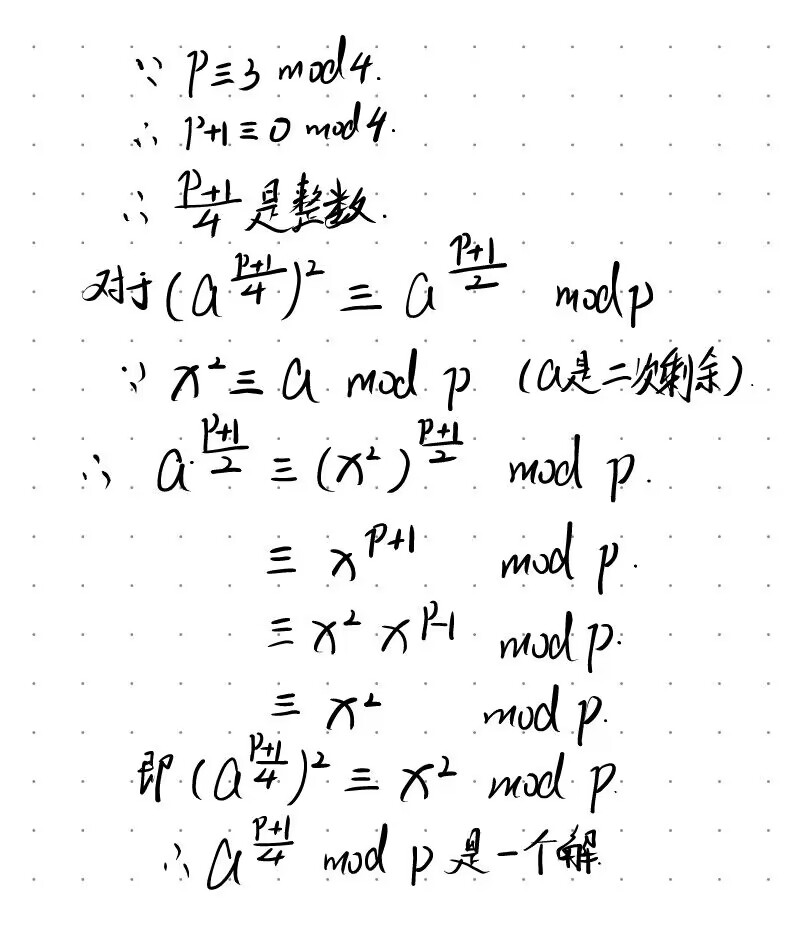 ∵ p≡3 mod 4.
∴ p+1≡0 mod 4.
∴ \frac{p+1}{4} 是整数.
对于 (a^{\frac{p+1}{4}})^2 ≡ a^{\frac{p+1}{2}} mod p
∵ x^2 ≡ a mod p (a是二次剩余).
∴ a^{\frac{p+1}{2}} ≡ (x^2)^{\frac{p+1}{2}} mod p.
≡ x^{p+1} mod p.
≡ x^2 x^{p-1} mod p.
≡ x^2 mod p.
即 (a^{\frac{p+1}{4}})^2 ≡ x^2 mod p.
∴ a^{\frac{p+1}{4}} mod p 是一个解.